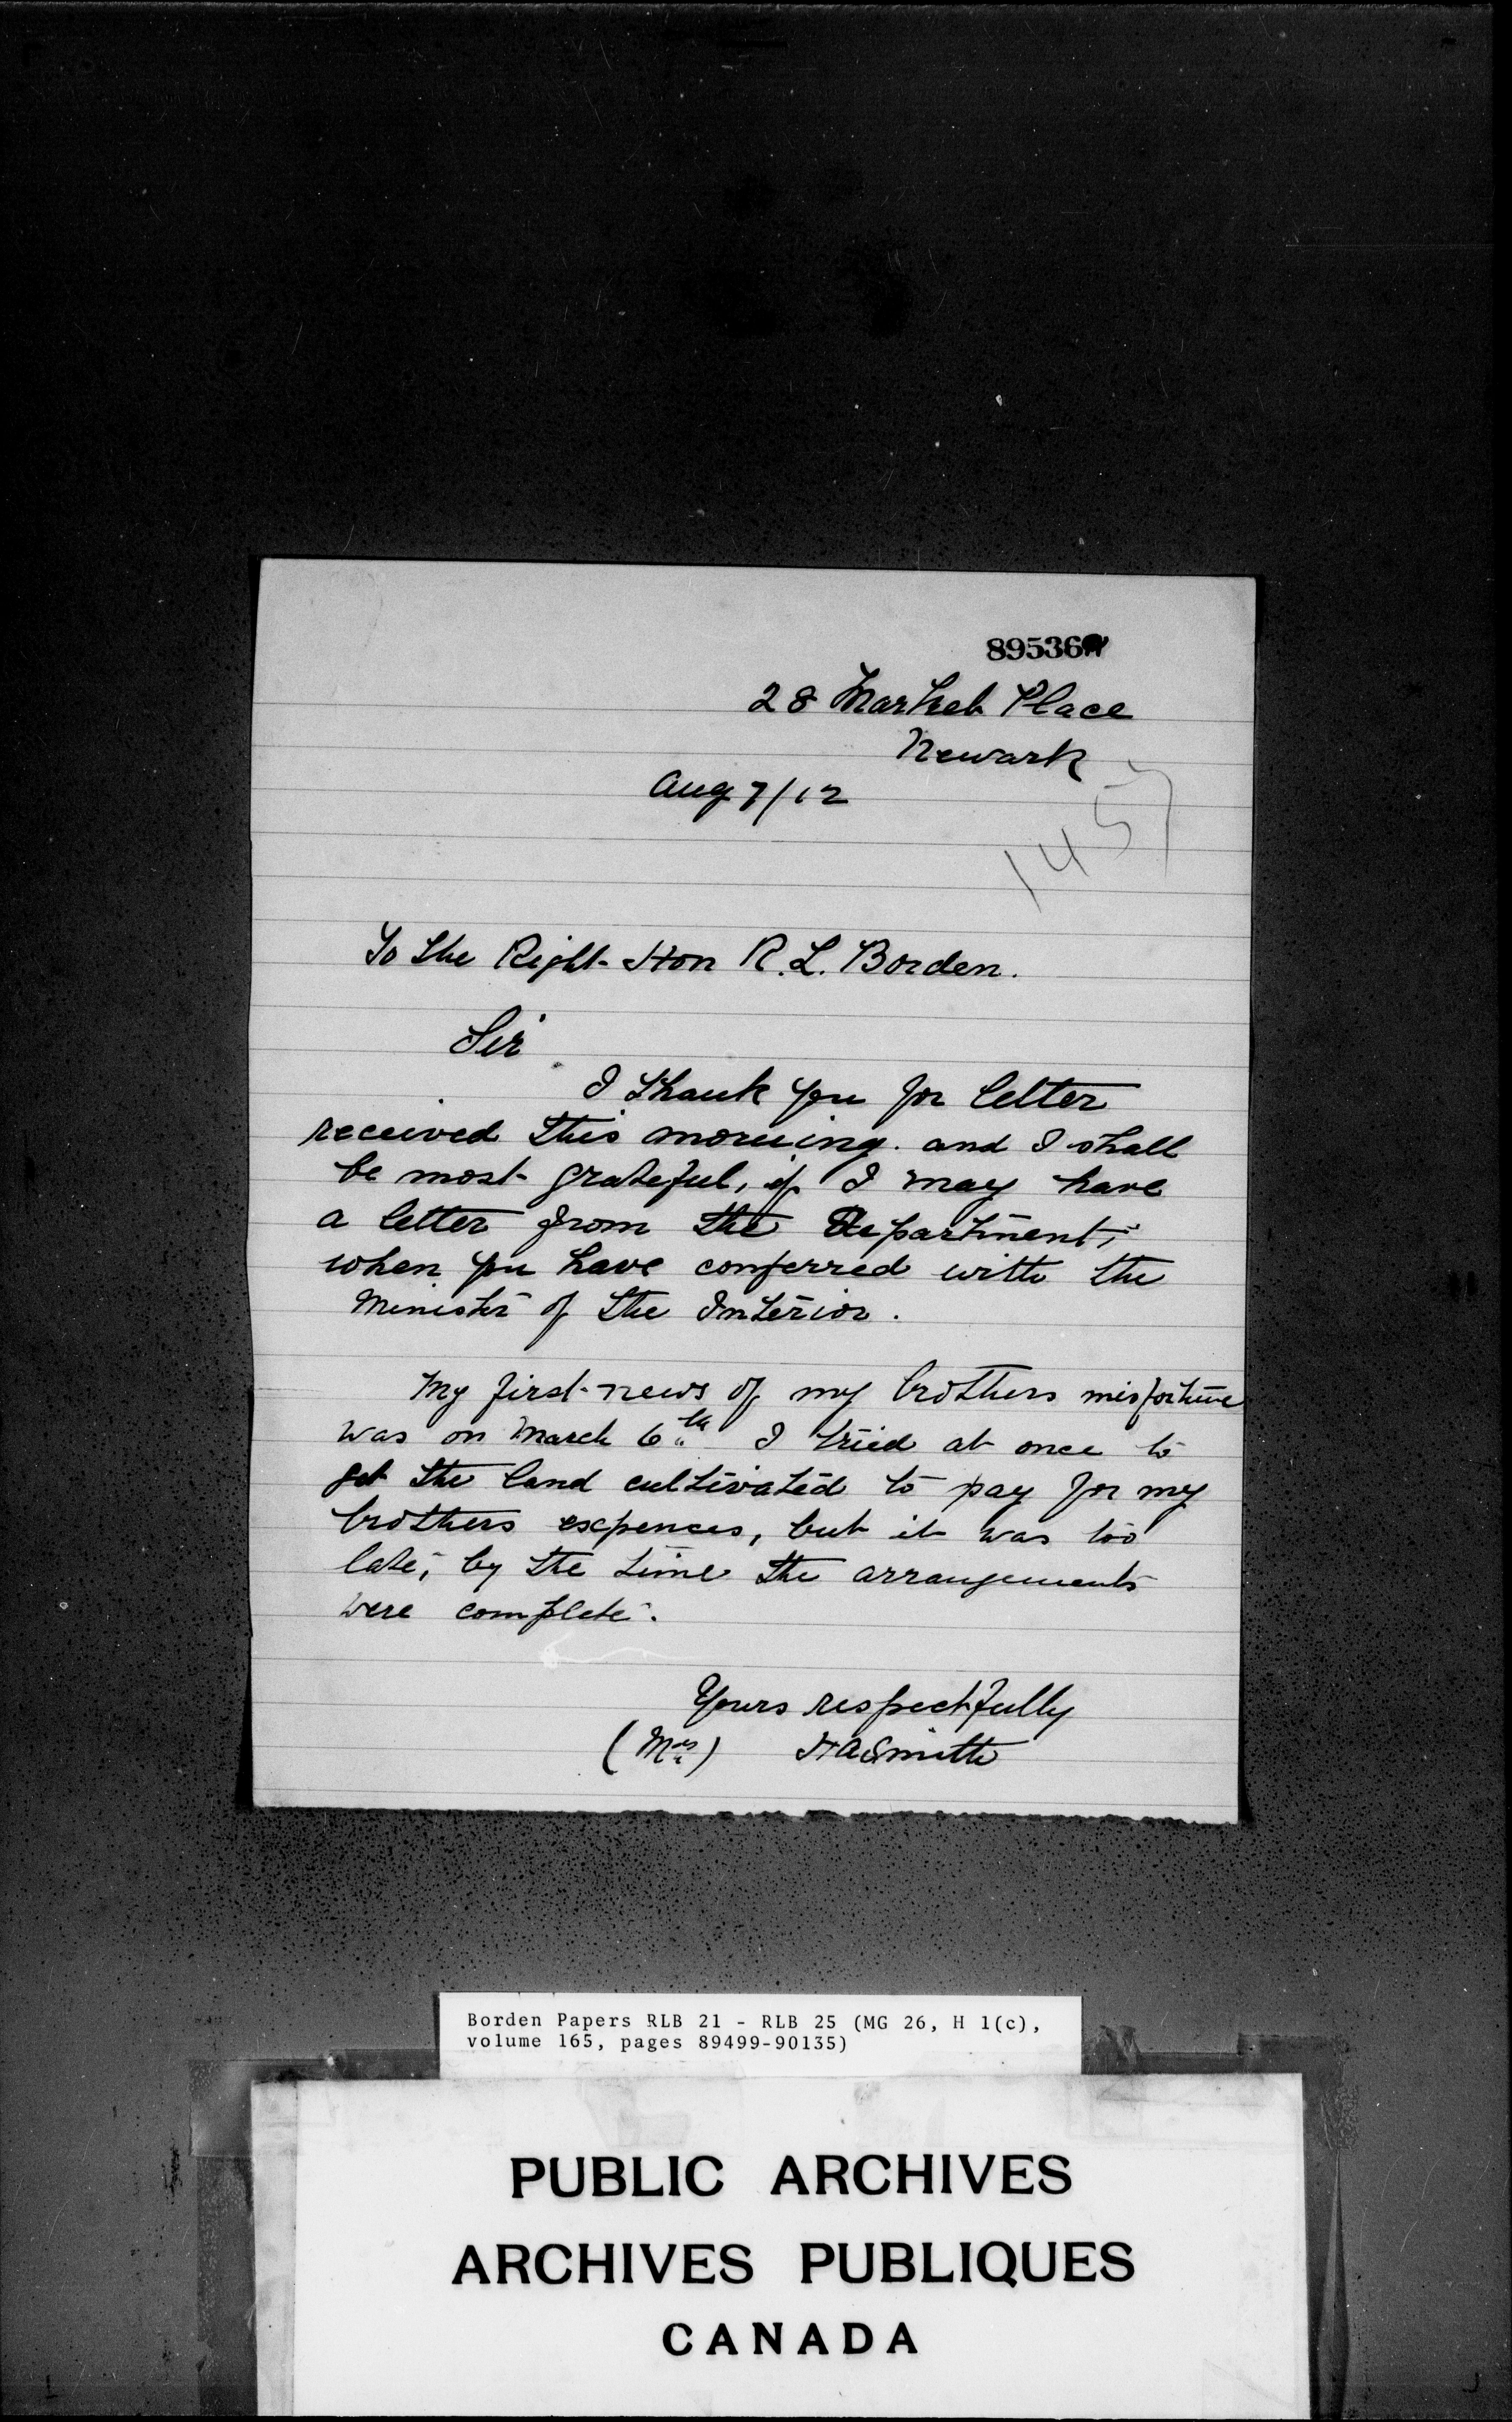 89536
28 Market Place
Newark
Aug 7/12
1457
To the Right Hon R. L. Borden.
Sir
I thank you for letter
received this morning. and I shall
be most grateful, if I may have
a letter from the Department,
when you have conferred with the
Minister of the Interior.
My first news of my brothers misfortune
was on March 6th I tried at once to
get the land cultivated to pay for my
brothers expences, but it was too
late, by the time the arrangements
were complete.
Yours respectfully
(Mrs) H A Smith
Borden Papers RLB 21 - RLB 25 (MG 26, H 1(c),
volume 165, pages 89499-90135)
PUBLIC ARCHIVES
ARCHIVES PUBLIQUES
CANADA